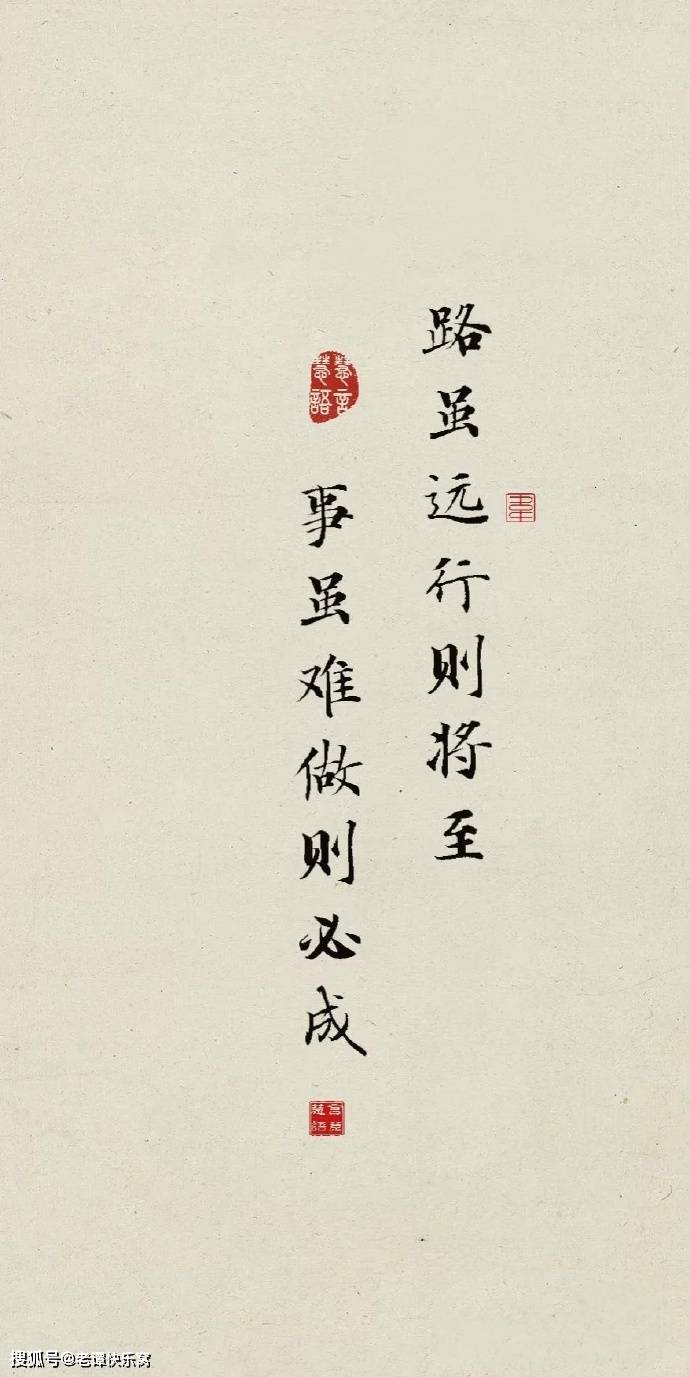 路虽远行则将至
事虽难做则必成
慧言
慧語
搜狐号@老谭快乐窝